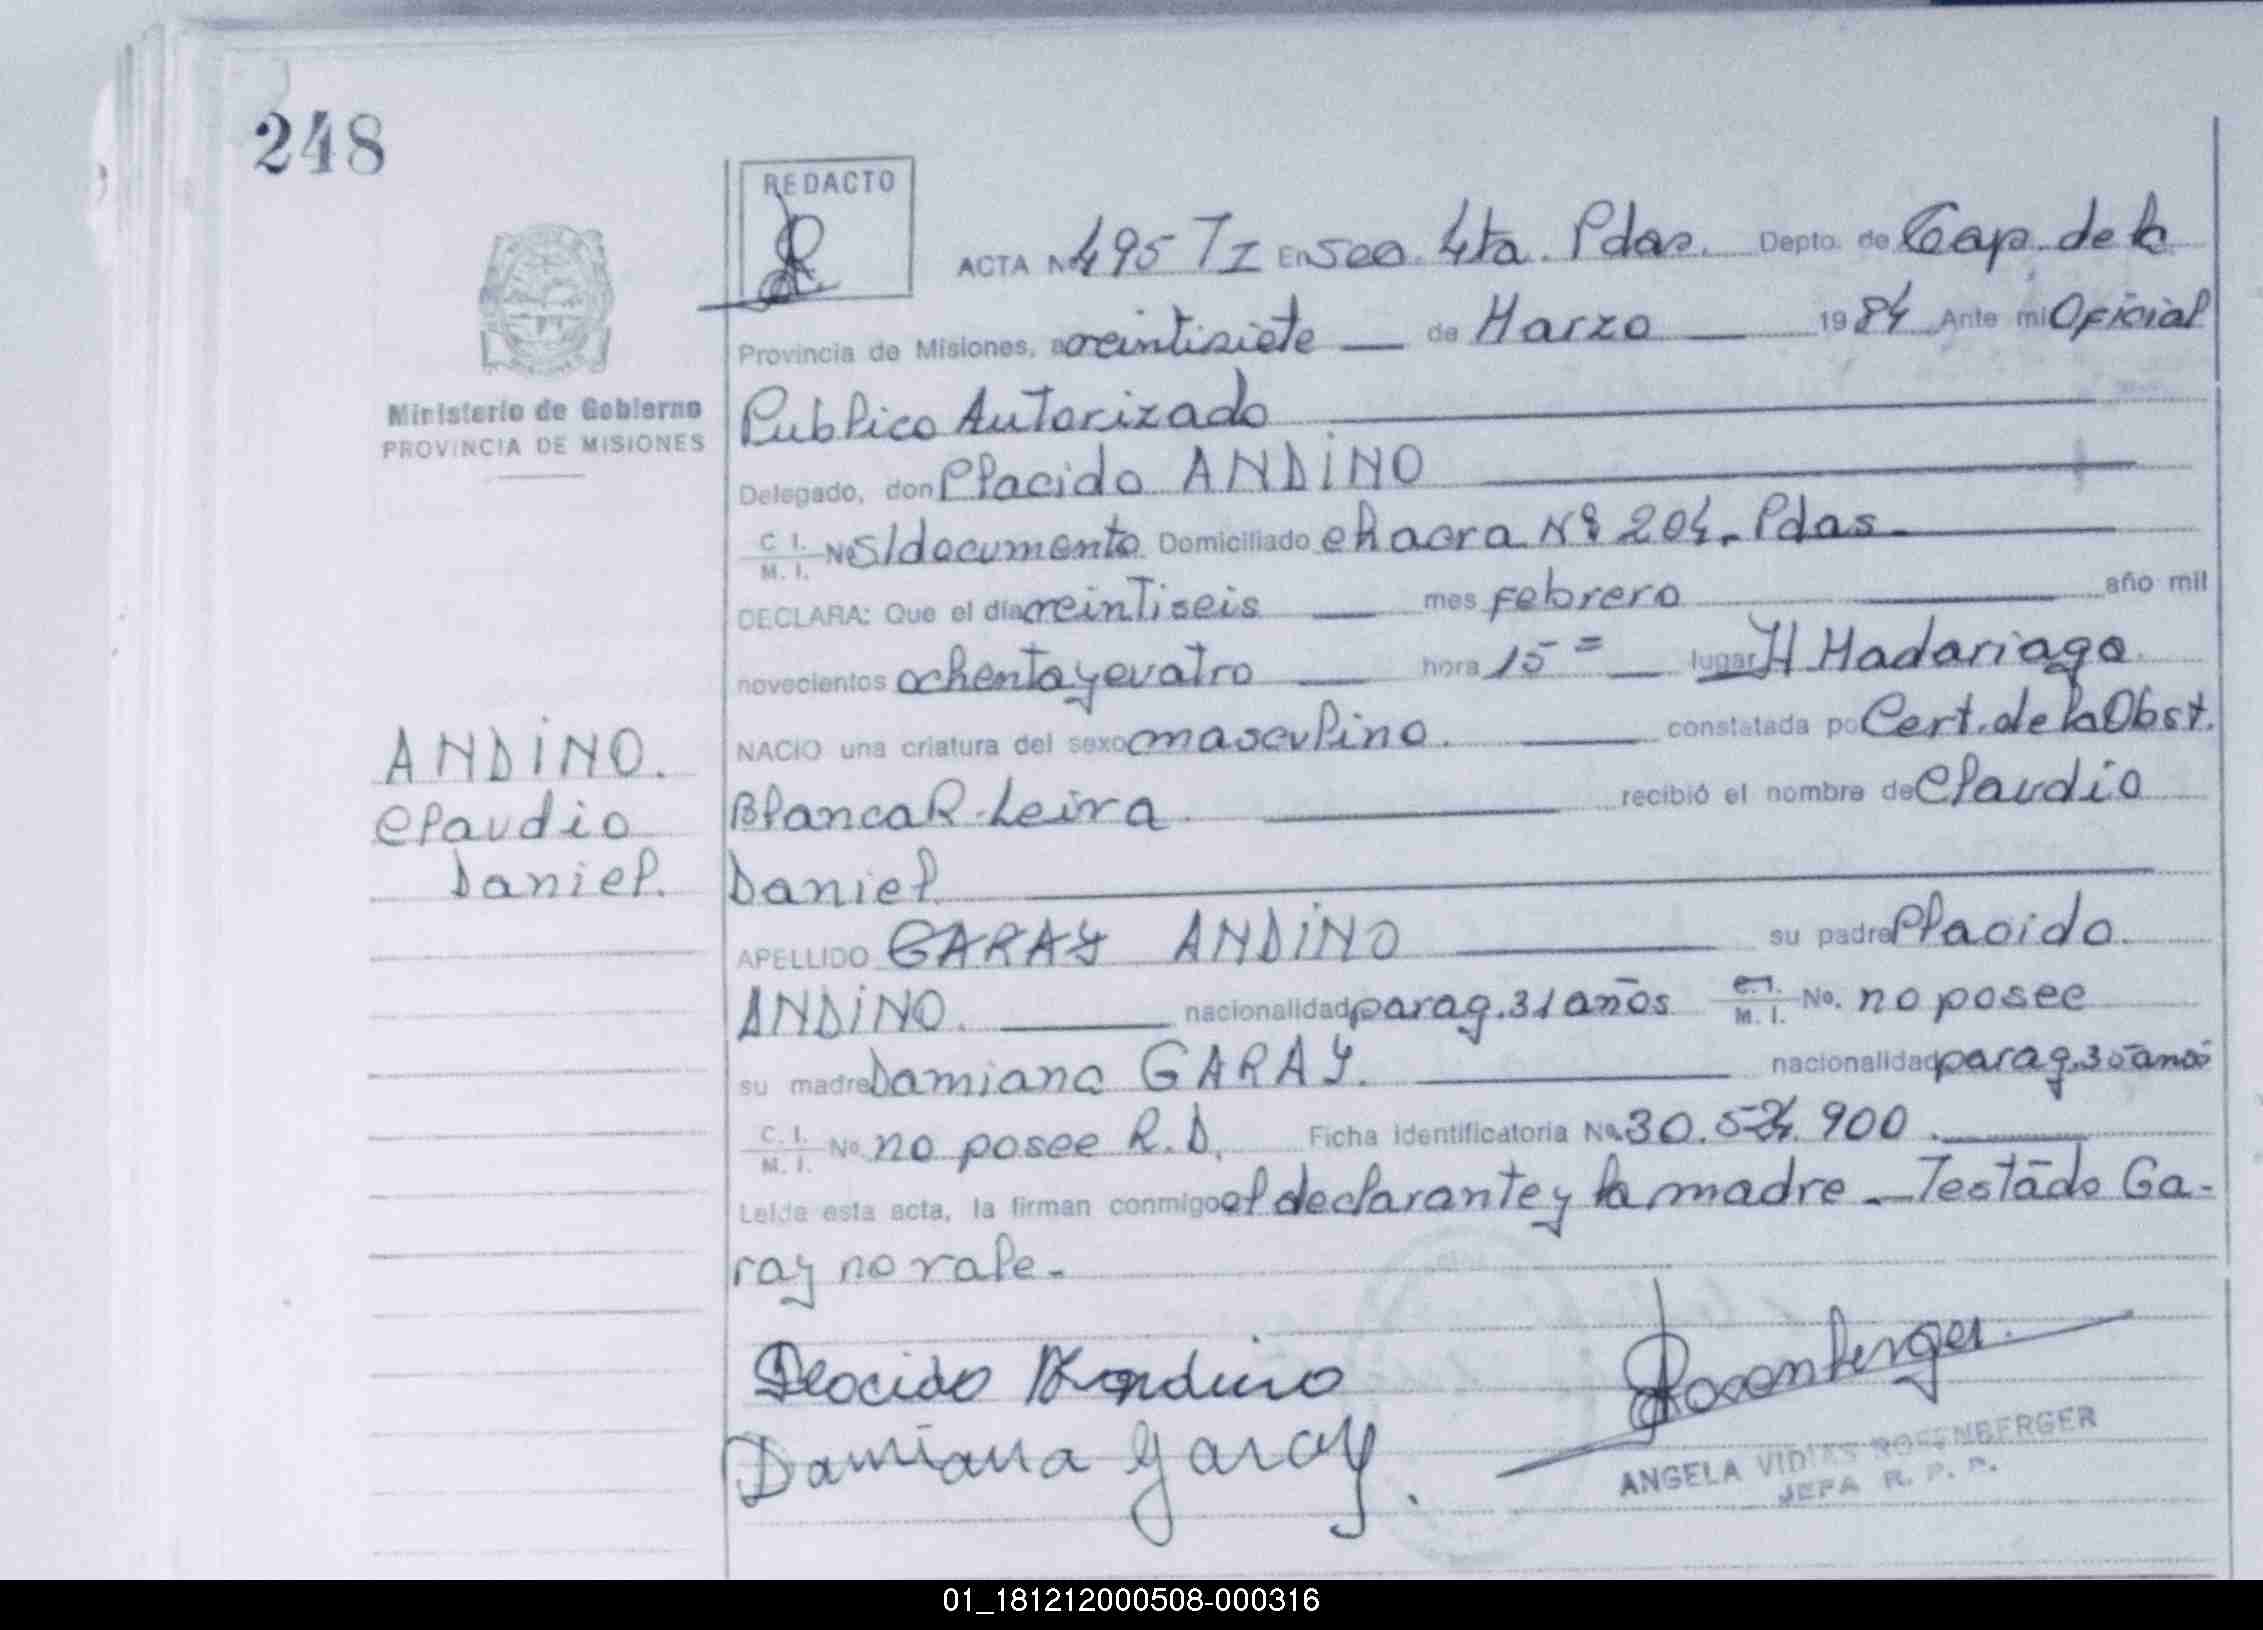 248
REDACTO
ACTA Nº 495 TI En Sec. 4ta. Pdas. Depto. de Cap. de la
Provincia de Misiones, a veintisiete de Marzo 1984 Ante mi Oficial
Ministerio de Gobierno
PROVINCIA DE MISIONES
Publico Autorizado
Delegado, don Placido ANDINO
C. I.
M. I. No S/documento Domiciliado chacra Nº 204. Pdas.
DECLARA: Que el día veintiseis mes febrero año mil
novecientos ochenta y cuatro hora 15 = lugar H Madariaga
NACIO una criatura del sexo masculino. constatada po Cert. de la Obst.
Blanca R. Leiva recibió el nombre de Claudio
Daniel
ANDINO.
Claudio
Daniel.
APELLIDO GARAY ANDINO su padre Placido
ANDINO. nacionalidad parag. 31 años C. I.
M. I. No. no posee
su madre Damiana GARAY. nacionalidad parag. 30 años
C. I.
M. I. No. no posee R.D. Ficha identificatoria No. 30. 900.
Leída esta acta, la firman conmigo el declarante y la madre. Testado Ga-
ray no vale.
Placido Andino
Damiana Garay.
Rosenberger
ANGELA ROSENBERGER
JEFA R. P. P.
01_181212000508-000316